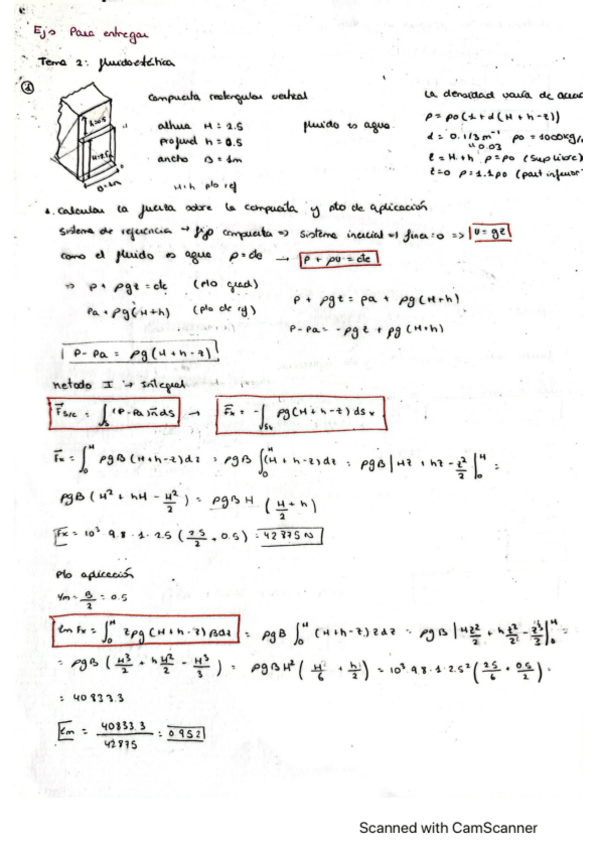 Ejs Para entregar
Tema 2: fluidoestática
①
compuerta rectangular vertical
La densidad varia de acue
altura H = 2.5
fluido es agua
ρ = ρ0 (1+α(H+h-z))
profund h = 0.5
α = 0.1/3 m⁻¹ ρ0 = 1000 kg/
ancho B = 1m
" 0.03
z = H+h ρ = ρ0 (sup libre)
H+h pto ref
z=0 ρ = 1.1ρ0 (part inferior
1. Calcular la fuerza sobre la compuerta y pto de aplicación.
Sistema de referencia → fijo compuerta => sistema inercial => finer = 0 => U = gz
como el fluido es agua ρ = cte → P + ρU = cte
=> P + ρgz = cte (pto gnal)
P + ρgz = Pa + ρg(H+h)
Pa + ρg(H+h) (pto de ref)
P - Pa = -ρgz + ρg(H+h)
P - Pa = ρg(H+h-z)
metodo I → integral
F⃗s/c = ∫s (P-Pa) n⃗ ds → F⃗x = -∫sx ρg(H+h-z) dsx
F⃗x = ∫₀ᴴ ρgB(H+h-z)dz = ρgB ∫₀ᴴ(H+h-z)dz = ρgB |Hz + hz - z²/2|₀ᴴ =
ρgB (H² + hH - H²/2) = ρgBH (H/2 + h)
Fx = 10³ · 9.8 · 1 · 2.5 (2.5/2 + 0.5) = 42875 N
Pto aplicación
Ym = B/2 = 0.5
Zm Fx = ∫₀ᴴ zρg(H+h-z) B dz = ρgB ∫₀ᴴ (H+h-z) z dz = ρgB |Hz²/2 + hz²/2 - z³/3|₀ᴴ =
= ρgB (H³/2 + hH²/2 - H³/3) = ρgBH² (H/6 + h/2) = 10³ · 9.8 · 1 · 2.5² (2.5/6 + 0.5/2) =
= 40833.3
Zm = 40833.3/42875 = 0.952
Scanned with CamScanner